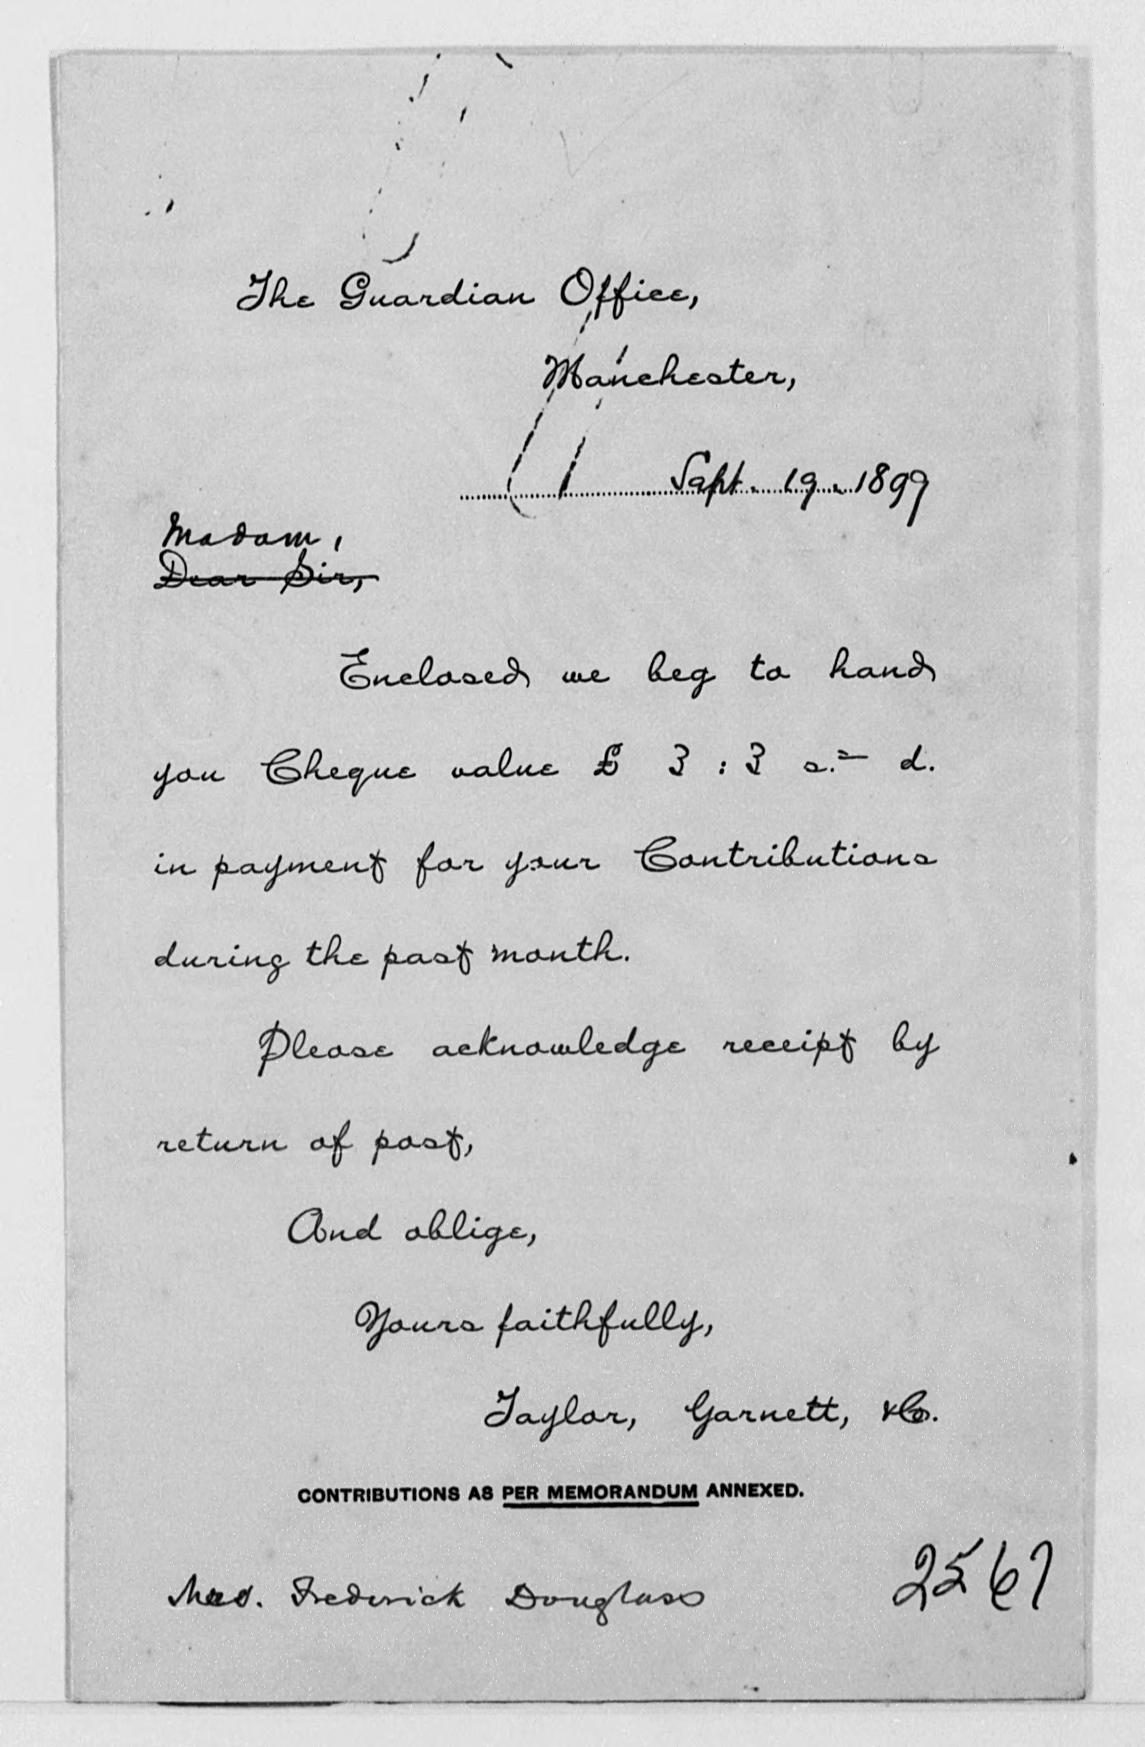 The Guardian Office,
Manchester,
Sept. 19. 1899
Madam,
Dear Sir,
Enclosed we beg to hand
you Cheque value £ 3 : 3 s. - d.
in payment for your Contributions
during the past month.
Please acknowledge receipt by
return of post,
And oblige,
Yours faithfully,
Taylor, Garnett, & Co.
CONTRIBUTIONS AS PER MEMORANDUM ANNEXED.
Mrs. Frederick Douglass
2567